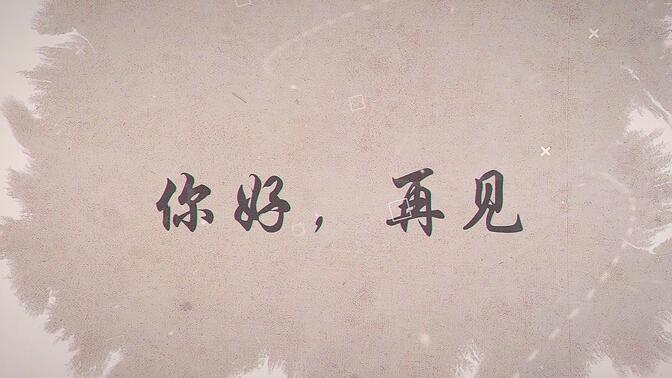 你好，再见